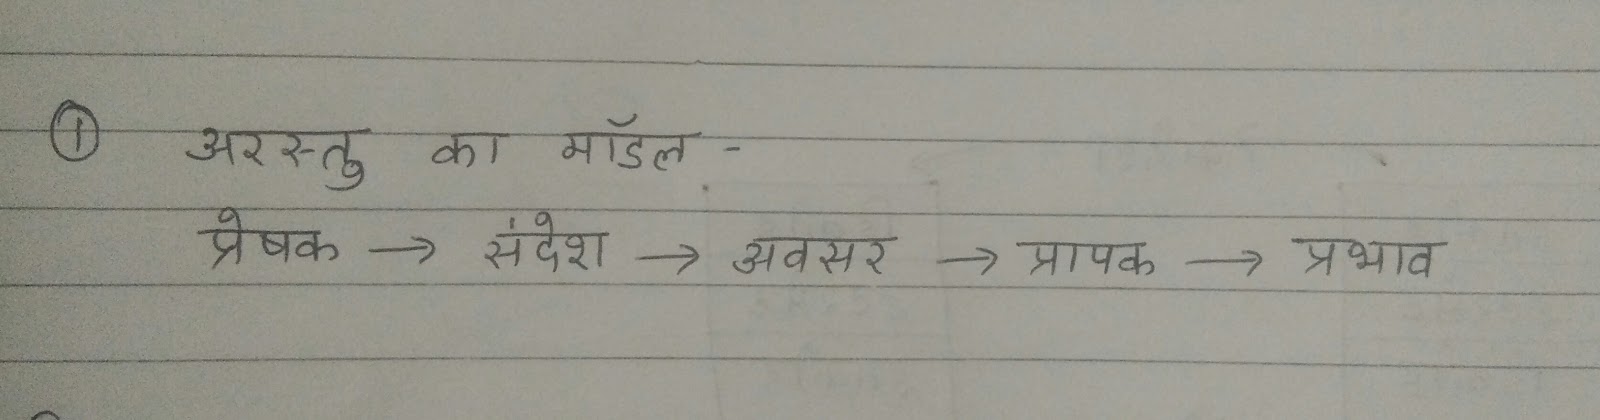 ① अरस्तु का मॉडल -
प्रेषक → संदेश → अवसर → प्रापक → प्रभाव